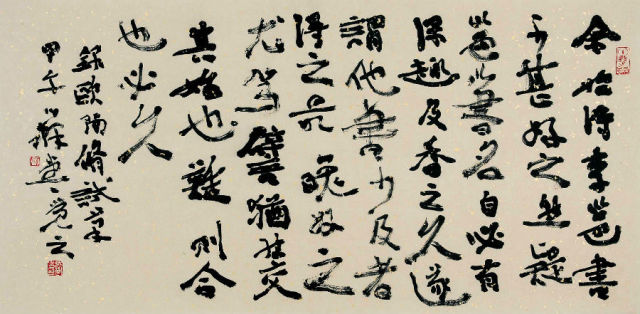 余始得李邕書
不甚好之然疑
邕以書名自必有
深趣及看之久遂
謂他書少及者
得之最晚好之
尤篤譬猶結交
其始也難則合
也必久
錄歐陽脩試筆
甲午